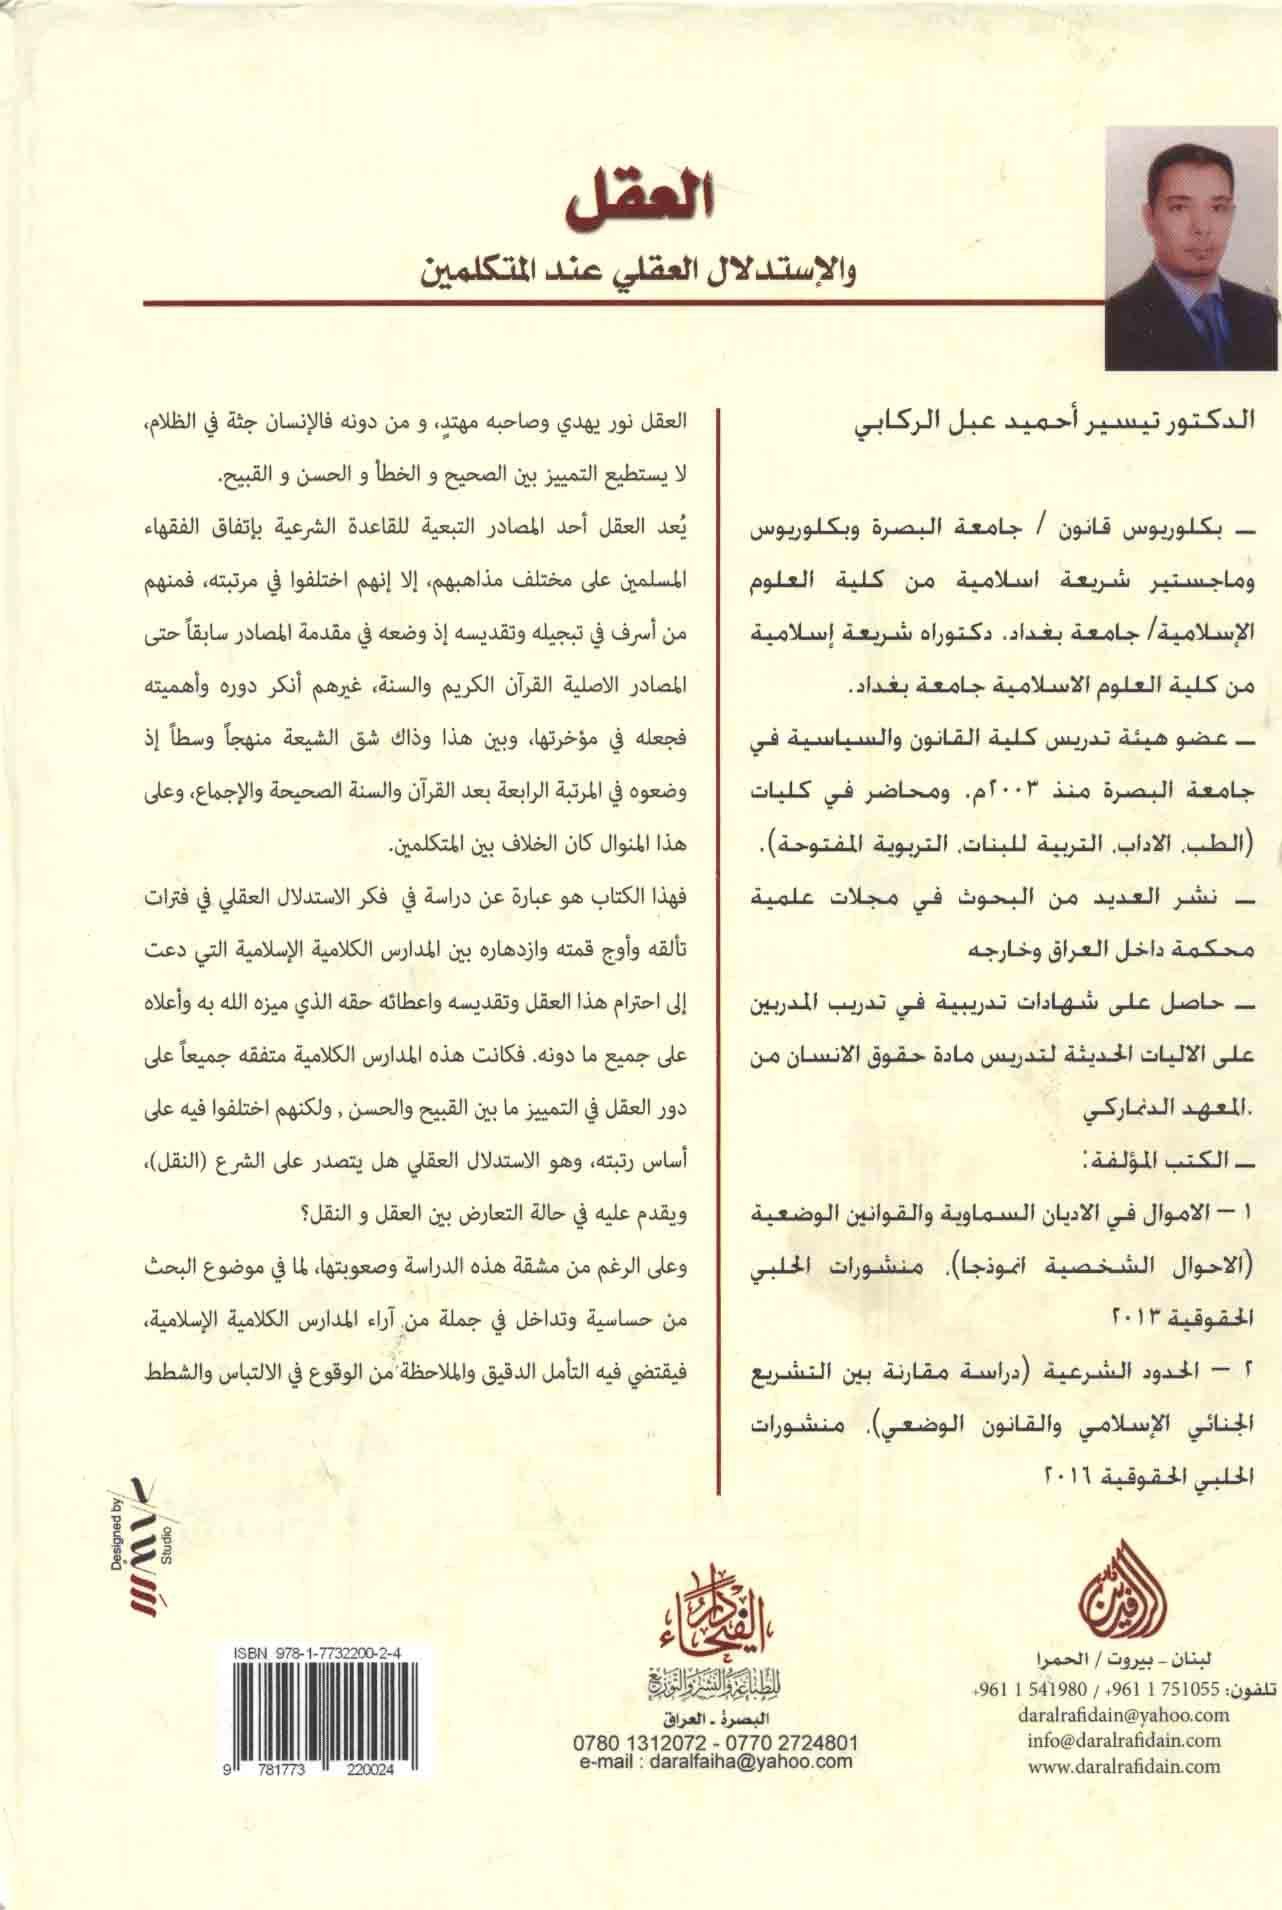 العقل
والإستدلال العقلي عند المتكلمين
الدكتور تيسير أحميد عبل الركابي
ـ بكلوريوس قانون / جامعة البصرة وبكلوريوس
وماجستير شريعة اسلامية من كلية العلوم
الإسلامية/ جامعة بغداد. دكتوراه شريعة إسلامية
من كلية العلوم الاسلامية جامعة بغداد.
ـ عضو هيئة تدريس كلية القانون والسياسية في
جامعة البصرة منذ ٢٠٠٣م. ومحاضر في كليات
(الطب. الاداب. التربية للبنات. التربوية المفتوحة).
ـ نشر العديد من البحوث في مجلات علمية
محكمة داخل العراق وخارجه
ـ حاصل على شهادات تدريبية في تدريب المدربين
على الاليات الحديثة لتدريس مادة حقوق الانسان من
.المعهد الدنماركي
ـ الكتب المؤلفة:
١ – الاموال في الاديان السماوية والقوانين الوضعية
(الاحوال الشخصية انموذجا). منشورات الحلبي
الحقوقية ٢٠١٣
٢ – الحدود الشرعية (دراسة مقارنة بين التشريع
الجنائي الإسلامي والقانون الوضعي). منشورات
الحلبي الحقوقية ٢٠١٦
العقل نور يهدي وصاحبه مهتدٍ، و من دونه فالإنسان جثة في الظلام،
لا يستطيع التمييز بين الصحيح و الخطأ و الحسن و القبيح.
يُعد العقل أحد المصادر التبعية للقاعدة الشرعية بإتفاق الفقهاء
المسلمين على مختلف مذاهبهم، إلا إنهم اختلفوا في مرتبته، فمنهم
من أسرف في تبجيله وتقديسه إذ وضعه في مقدمة المصادر سابقاً حتى
المصادر الاصلية القرآن الكريم والسنة، غيرهم أنكر دوره وأهميته
فجعله في مؤخرتها، وبين هذا وذاك شق الشيعة منهجاً وسطاً إذ
وضعوه في المرتبة الرابعة بعد القرآن والسنة الصحيحة والإجماع، وعلى
هذا المنوال كان الخلاف بين المتكلمين.
فهذا الكتاب هو عبارة عن دراسة في فكر الاستدلال العقلي في فترات
تألقه وأوج قمته وازدهاره بين المدارس الكلامية الإسلامية التي دعت
إلى احترام هذا العقل وتقديسه واعطائه حقه الذي ميزه الله به وأعلاه
على جميع ما دونه. فكانت هذه المدارس الكلامية متفقه جميعاً على
دور العقل في التمييز ما بين القبيح والحسن , ولكنهم اختلفوا فيه على
أساس رتبته، وهو الاستدلال العقلي هل يتصدر على الشرع (النقل)،
ويقدم عليه في حالة التعارض بين العقل و النقل؟
وعلى الرغم من مشقة هذه الدراسة وصعوبتها، لما في موضوع البحث
من حساسية وتداخل في جملة من آراء المدارس الكلامية الإسلامية،
فيقتضي فيه التأمل الدقيق والملاحظة من الوقوع في الالتباس والشطط
Designed by
Studio
دار الرافدين
لبنان ـ بيروت / الحمرا
تلفون: 751055 1 961+ / 541980 1 961+
daralrafidain@yahoo.com
info@daralrafidain.com
www.daralrafidain.com
دار الفيحاء
للطباعة والنشر والتوزيع
البصرة ـ العراق
0780 1312072 - 0770 2724801
e-mail : daralfaiha@yahoo.com
ISBN 978-1-7732200-2-4
9 781773 220024